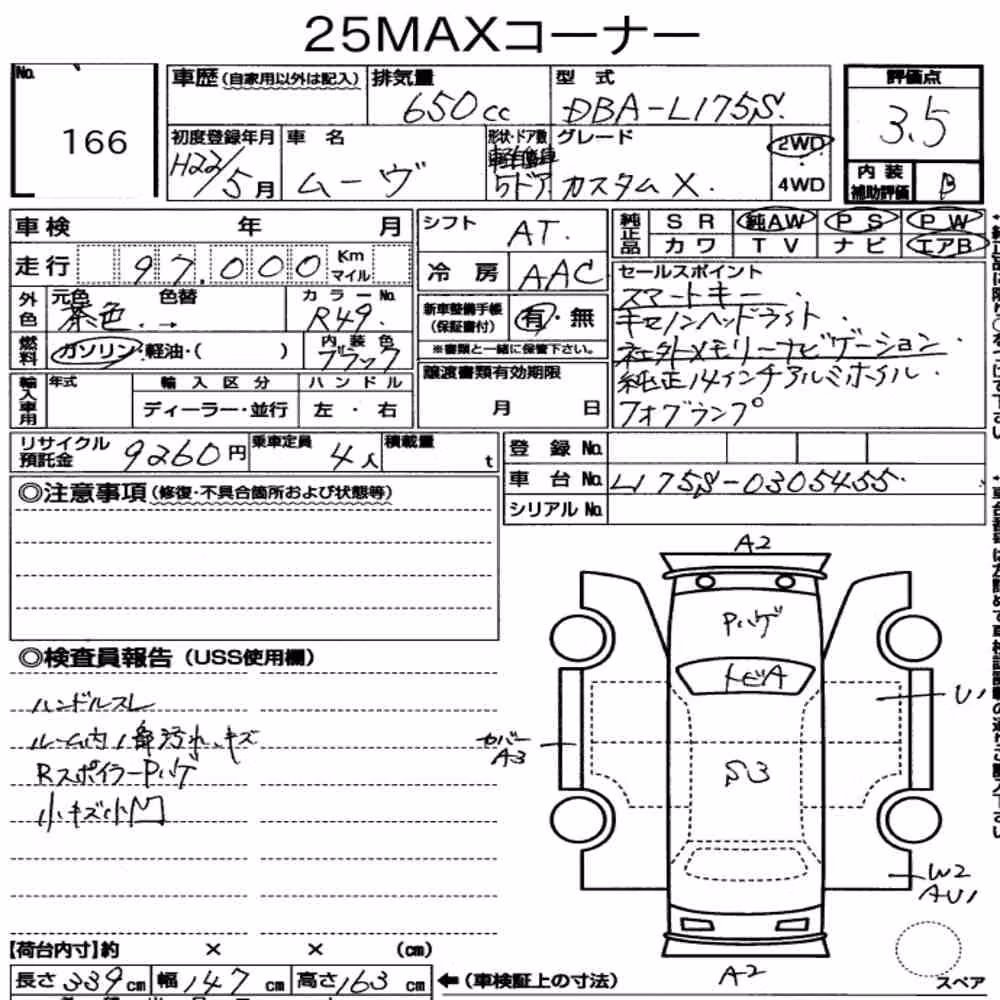 25MAXコーナー
No. 166
車歴(自家用以外は記入) 排気量 650cc 型式 DBA-L175S 評価点 3.5
初度登録年月 H22/5月 車名 ムーヴ 形状・ドア数 5ドア グレード カスタムX. 2WD 4WD
内装補助評価 B
車検 年 月 シフト AT. 純正品 SR 純AW PS PW
カワ TV ナビ エアB
走行 97,000 Km マイル 冷房 AAC
セールスポイント
スマートキー.
キセノンヘッドライト.
社外メモリーナビゲーション.
純正14インチアルミホイル.
フォグランプ
外色 元色 茶色. → 色替 カラーNo. R49.
新車整備手帳(保証書付) 有・無
※書類と一緒に保管下さい。
燃料 ガソリン・軽油・( ) 内装色 ブラック
輸入車用 年式 輸入区分 ハンドル
ディーラー・並行 左・右
譲渡書類有効期限
月 日
リサイクル預託金 9260円 乗車定員 4人 積載量 t
登録No.
車台No. L175S-0305455.
シリアルNo.
◎注意事項(修復・不具合箇所および状態等)
◎検査員報告(USS使用欄)
ハンドルスレ
ルーム内1部汚れ、キズ
Rスポイラー Pハゲ
小キズ小凹
A2
Pハゲ
トビA
U1
カバー
A3
S3
W2
AU1
A2
スペア
【荷台内寸】約 × × (cm)
長さ339cm 幅147cm 高さ163cm ←(車検証上の寸法)